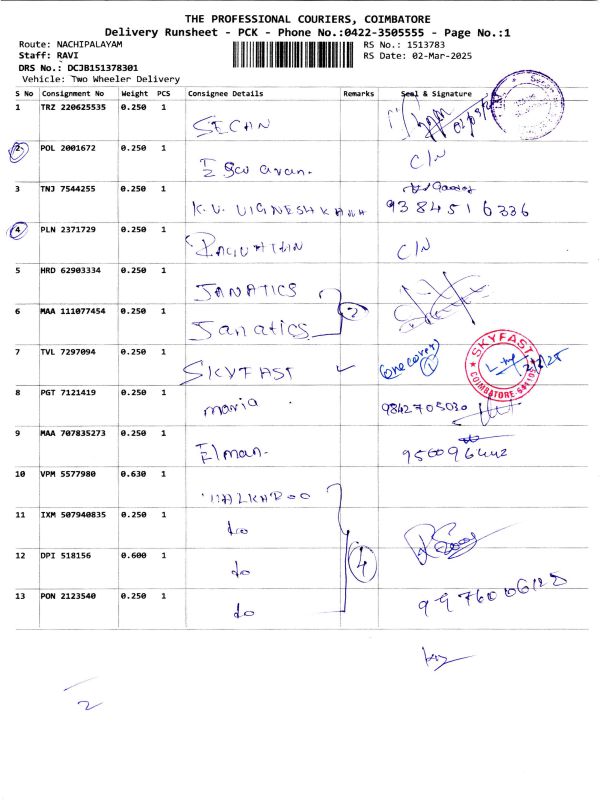 THE PROFESSIONAL COURIERS, COIMBATORE
Delivery Runsheet - PCK - Phone No.:0422-3505555 - Page No.:1
Route: NACHIPALAYAM
RS No.: 1513783
Staff: RAVI
RS Date: 02-Mar-2025
DRS No.: DCJB151378301
Vehicle: Two Wheeler Delivery
S No Consignment No Weight PCS Consignee Details Remarks Seal & Signature
1 TRZ 220625535 0.250 1 SECAN
2 POL 2001672 0.250 1 C/N
3 TNJ 7544255 0.250 1 K.V. VIGNESH KANNA 9384516336
4 PLN 2371729 0.250 1 C/N
5 HRD 62903334 0.250 1 JANATICS
6 MAA 111077454 0.250 1 Janatics 2
7 TVL 7297094 0.250 1 SKYFAST (one cover) 1 SKYFAST COIMBATORE
8 PGT 7121419 0.250 1 maria 9842705030
9 MAA 707835273 0.250 1 Elman.
10 VPM 5577980 0.630 1 WALKAROO
11 IXM 507940835 0.250 1 do
12 DPI 518156 0.600 1 do 4
13 PON 2123540 0.250 1 do
2